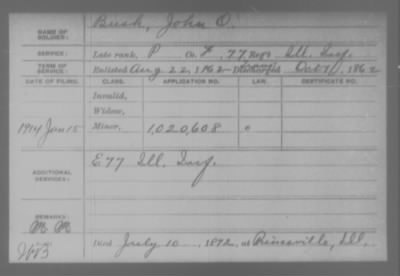 NAME OF SOLDIER: Bush, John O.
SERVICE: Late rank, P Co. F, 77 Reg't Ill. Inf.
TERM OF SERVICE: Enlisted Aug 22, 1862 Discharged Oct 11, 1862
DATE OF FILING. CLASS. APPLICATION NO. LAW. CERTIFICATE NO.
Invalid,
Widow,
1914 Jan 15 Minor, 1,020,608
ADDITIONAL SERVICES: E 77 Ill. Inf.
REMARKS:
Died July 10, 1872, at Ill.